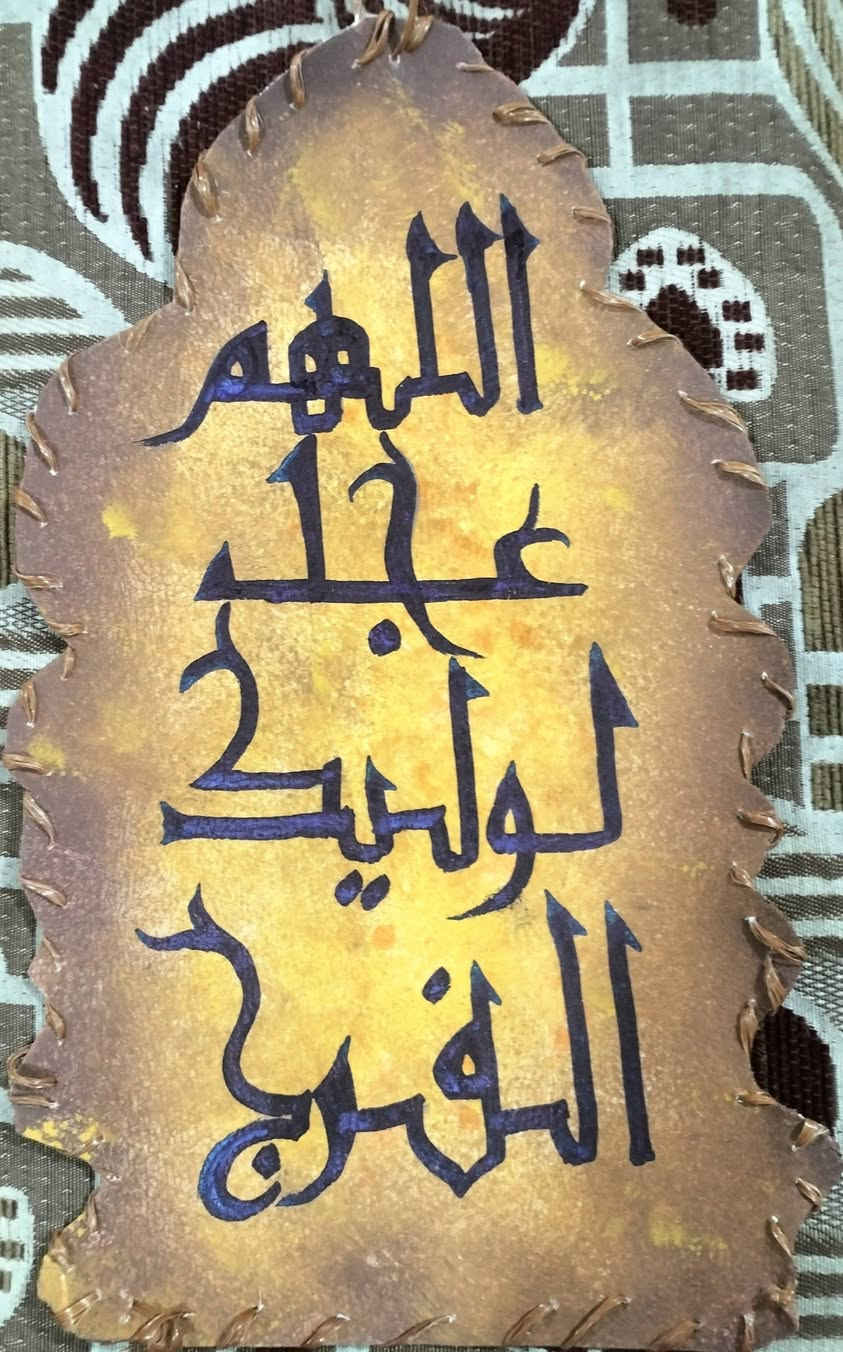 اللهم
عجل
لوليك
الفرج